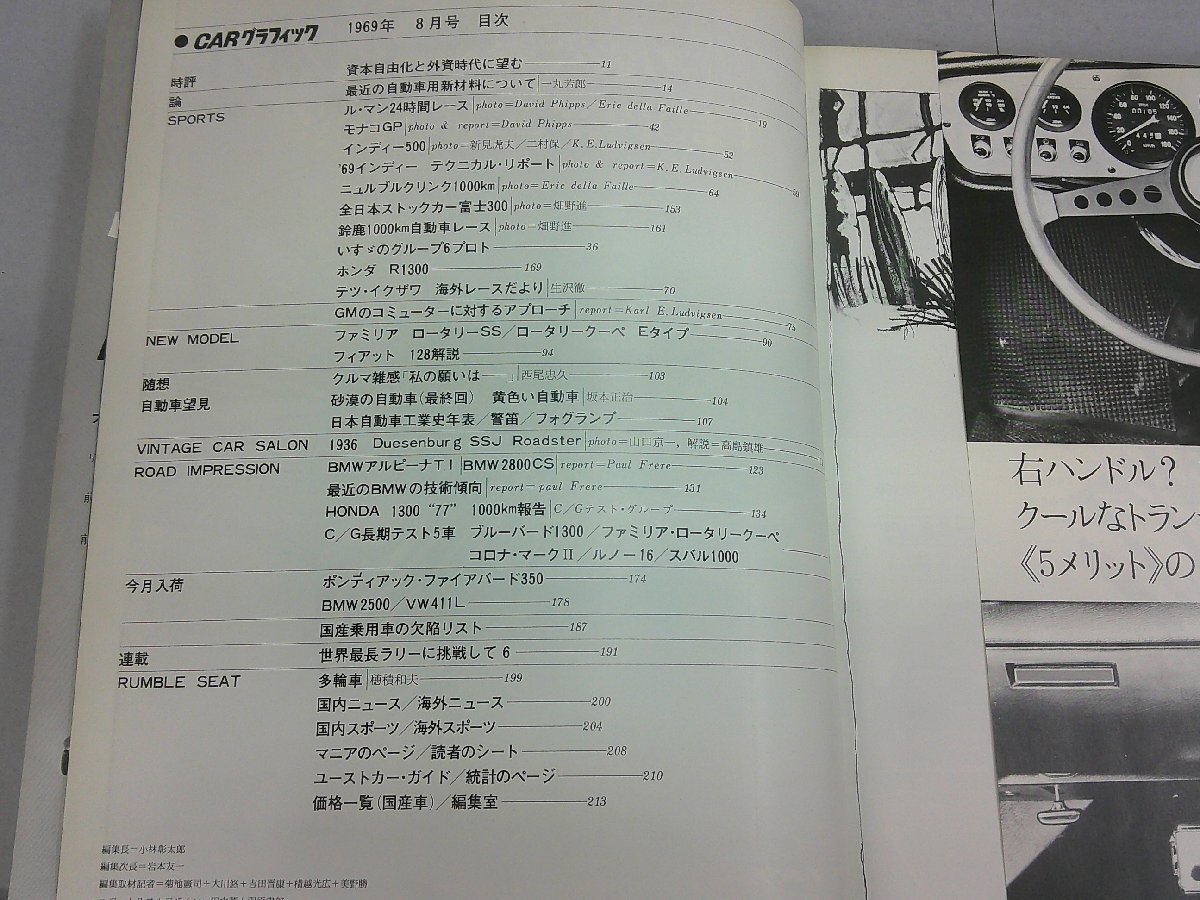 ●CARグラフィック 1969年 8月号 目次
時評 資本自由化と外資時代に望む 11
論 最近の自動車用新材料について 一丸芳郎 14
SPORTS ル・マン24時間レース photo=David Phipps／Eric della Faille 19
モナコGP photo & report=David Phipps 42
インディー500 photo=新見虎夫／二村保／K.E.Ludvigsen 52
'69インディー テクニカル・リポート photo & report=K.E.Ludvigsen
ニュルブルクリンク1000km photo=Eric della Faille 64
全日本ストックカー富士300 photo=畑野進 153
鈴鹿1000km自動車レース photo=畑野進 161
いすゞのグループ6プロト 36
ホンダ R1300 169
テツ・イクザワ 海外レースだより 生沢徹 70
GMのコミューターに対するアプローチ report=Karl E.Ludvigsen 75
NEW MODEL ファミリア ロータリーSS／ロータリークーペ Eタイプ 90
フィアット 128解説 94
随想 クルマ雑感「私の願いは——」 西尾忠久 103
自動車望見 砂漠の自動車(最終回) 黄色い自動車 坂本正治 104
日本自動車工業史年表／警笛／フォグランプ 107
VINTAGE CAR SALON 1936 Duesenburg SSJ Roadster photo=山口京一, 解説=高島鎮雄
ROAD IMPRESSION BMWアルピーナTI BMW2800CS report=Paul Frere 123
最近のBMWの技術傾向 report=paul Frere 131
HONDA 1300 "77" 1000km報告 C/Gテスト・グループ 134
C/G長期テスト5車 ブルーバード1300／ファミリア・ロータリークーペ
コロナ・マークII／ルノー16／スバル1000
今月入荷 ポンディアック・ファイアバード350 174
BMW2500／VW411L 178
国産乗用車の欠陥リスト 187
連載 世界最長ラリーに挑戦して 6 191
RUMBLE SEAT 多輪車 穂積和夫 199
国内ニュース／海外ニュース 200
国内スポーツ／海外スポーツ 204
マニアのページ／読者のシート 208
ユーストカー・ガイド／統計のページ 210
価格一覧(国産車)／編集室 213
編集長=小林彰太郎
編集次長=岩本友一
右ハンドル？
クールなトラン
《5メリット》の